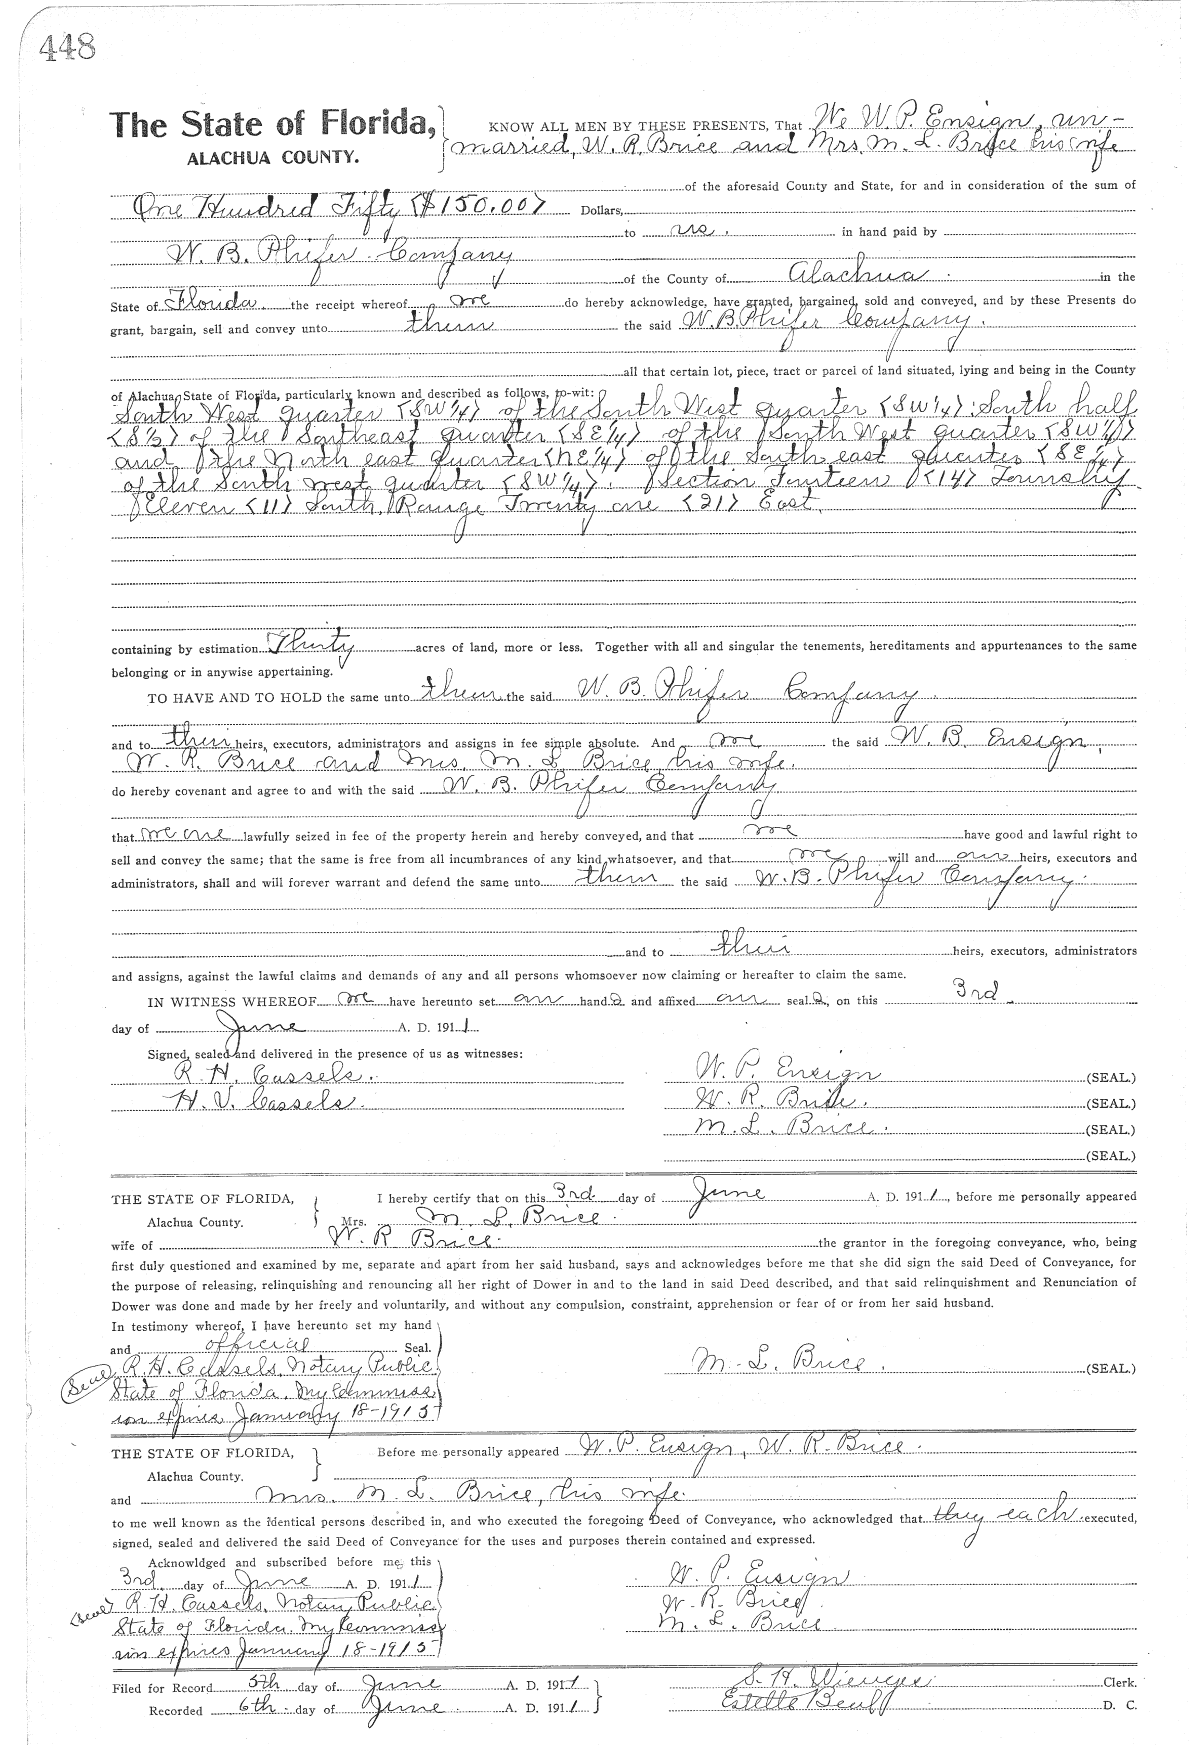 448
The State of Florida, KNOW ALL MEN BY THESE PRESENTS, That We W. P. Ensign, un-
ALACHUA COUNTY. married, W. R. Brice and Mrs. M. L. Brice his wife
of the aforesaid County and State, for and in consideration of the sum of
One Hundred Fifty ($150.00) Dollars,
to us. in hand paid by
W. B. Phifer Company
of the County of Alachua in the
State of Florida. the receipt whereof we do hereby acknowledge, have granted, bargained, sold and conveyed, and by these Presents do
grant, bargain, sell and convey unto them the said W. B. Phifer Company.
all that certain lot, piece, tract or parcel of land situated, lying and being in the County
of Alachua, State of Florida, particularly known and described as follows, to-wit:
South West quarter (SW 1/4) of the South West quarter (SW 1/4): South half
(S 1/2) of the Southeast quarter (SE 1/4) of the South West quarter (SW 1/4)
and the North east quarter (NE 1/4) of the South east quarter (SE 1/4)
of the South west quarter (SW 1/4). Section Fourteen (14) Township
Eleven (11) South, Range Twenty one (21) East.
containing by estimation Thirty acres of land, more or less. Together with all and singular the tenements, hereditaments and appurtenances to the same
belonging or in anywise appertaining.
TO HAVE AND TO HOLD the same unto them the said W. B. Phifer Company.
and to their heirs, executors, administrators and assigns in fee simple absolute. And we the said W. B. Ensign,
W. R. Brice and Mrs. M. L. Brice, his wife.
do hereby covenant and agree to and with the said W. B. Phifer Company
that we are lawfully seized in fee of the property herein and hereby conveyed, and that we have good and lawful right to
sell and convey the same; that the same is free from all incumbrances of any kind whatsoever, and that we will and our heirs, executors and
administrators, shall and will forever warrant and defend the same unto them the said W. B. Phifer Company.
and to their heirs, executors, administrators
and assigns, against the lawful claims and demands of any and all persons whomsoever now claiming or hereafter to claim the same.
IN WITNESS WHEREOF we have hereunto set our hands and affixed our seals, on this 3rd
day of June A. D. 1911.
Signed, sealed and delivered in the presence of us as witnesses:
R. H. Cassels. W. P. Ensign (SEAL.)
H. V. Cassels. W. R. Brice. (SEAL.)
M. L. Brice. (SEAL.)
(SEAL.)
THE STATE OF FLORIDA, I hereby certify that on this 3rd day of June A. D. 1911, before me personally appeared
Alachua County. Mrs. M. L. Brice.
wife of W. R Brice. the grantor in the foregoing conveyance, who, being
first duly questioned and examined by me, separate and apart from her said husband, says and acknowledges before me that she did sign the said Deed of Conveyance, for
the purpose of releasing, relinquishing and renouncing all her right of Dower in and to the land in said Deed described, and that said relinquishment and Renunciation of
Dower was done and made by her freely and voluntarily, and without any compulsion, constraint, apprehension or fear of or from her said husband.
In testimony whereof, I have hereunto set my hand
and official Seal.
(Seal) R. H. Cassels, Notary Public M. L. Brice. (SEAL.)
State of Florida. My Commiss
ion expires January 18-1915
THE STATE OF FLORIDA, Before me personally appeared W. P. Ensign, W. R. Brice.
Alachua County.
and Mrs. M. L. Brice, his wife.
to me well known as the identical persons described in, and who executed the foregoing Deed of Conveyance, who acknowledged that they each executed,
signed, sealed and delivered the said Deed of Conveyance for the uses and purposes therein contained and expressed.
Acknowldged and subscribed before me, this
3rd. day of June A. D. 1911 W. P. Ensign
(Seal) R. H. Cassels, Notary Public W. R. Brice.
State of Florida. My Commiss M. L. Brice
ion expires January 18-1915
Filed for Record 5th day of June A. D. 1911 S. H. Wienges Clerk.
Recorded 6th. day of June. A. D. 1911 Estelle D. C.